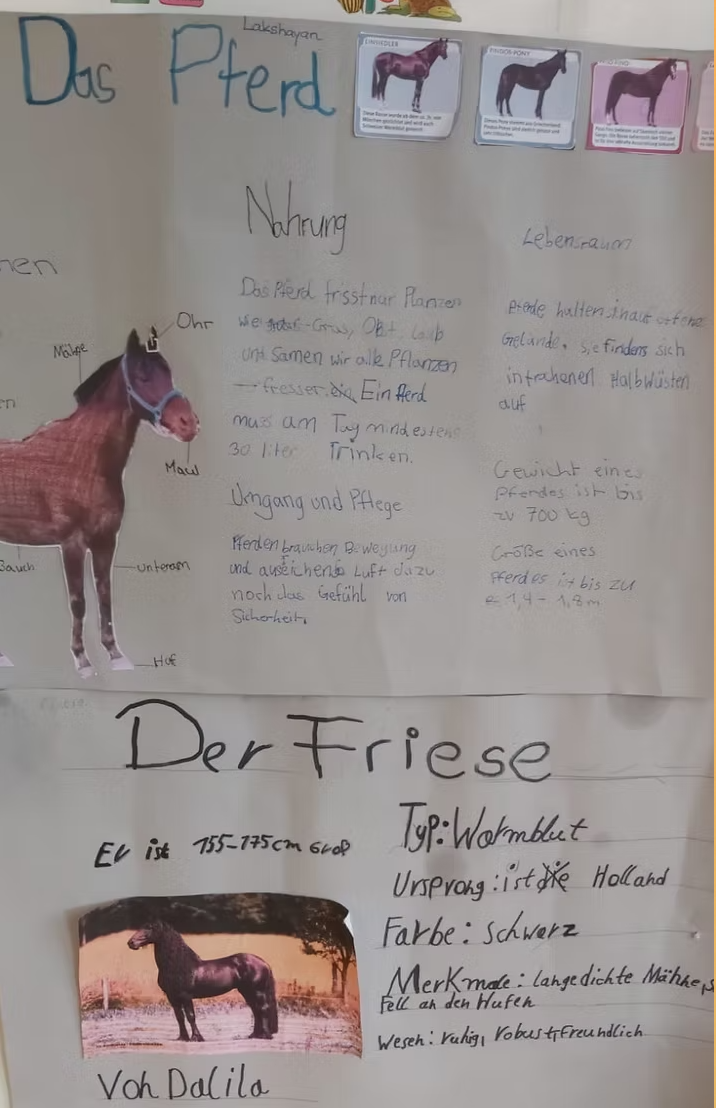 Lakshayan
Das Pferd
EINSIEDLER
PINDOS-PONY
nen
Nahrung
Das Pferd frisst nur Planzen
wie Gras, Obt, Laub
und Samen wir alle Pflanzen
fresser. Ein Pferd
muss am Tag mindestens
30 liter Trinken.
Umgang und Pflege
Pferden brauchen Bewegung
und Luft dazu
noch das Gefühl von
Sicherheit.
Lebensraum
Pferde halten offene
Gelände. sie findens sich
in trockenen Halbwüsten
auf
Gewicht eines
Pferdes ist bis
zu 700 kg
Größe eines
Pferdes ist bis zu
1,4 - 1,8 m
Ohr
Mähne
Maul
Bauch
unterarm
Huf
Der Friese
Er ist 155-175cm Groß
Typ: Warmblut
Ursprong: ist die Holland
Farbe: schwarz
Merkmale: lange dichte Mähne,
Fell an den Hufen
Wesen: ruhig, robust, freundlich
Von Dalila